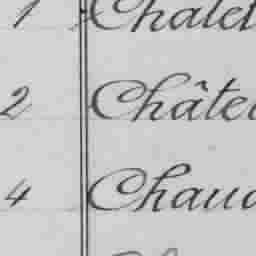 1 Chalet
2 Châte
4 Chau